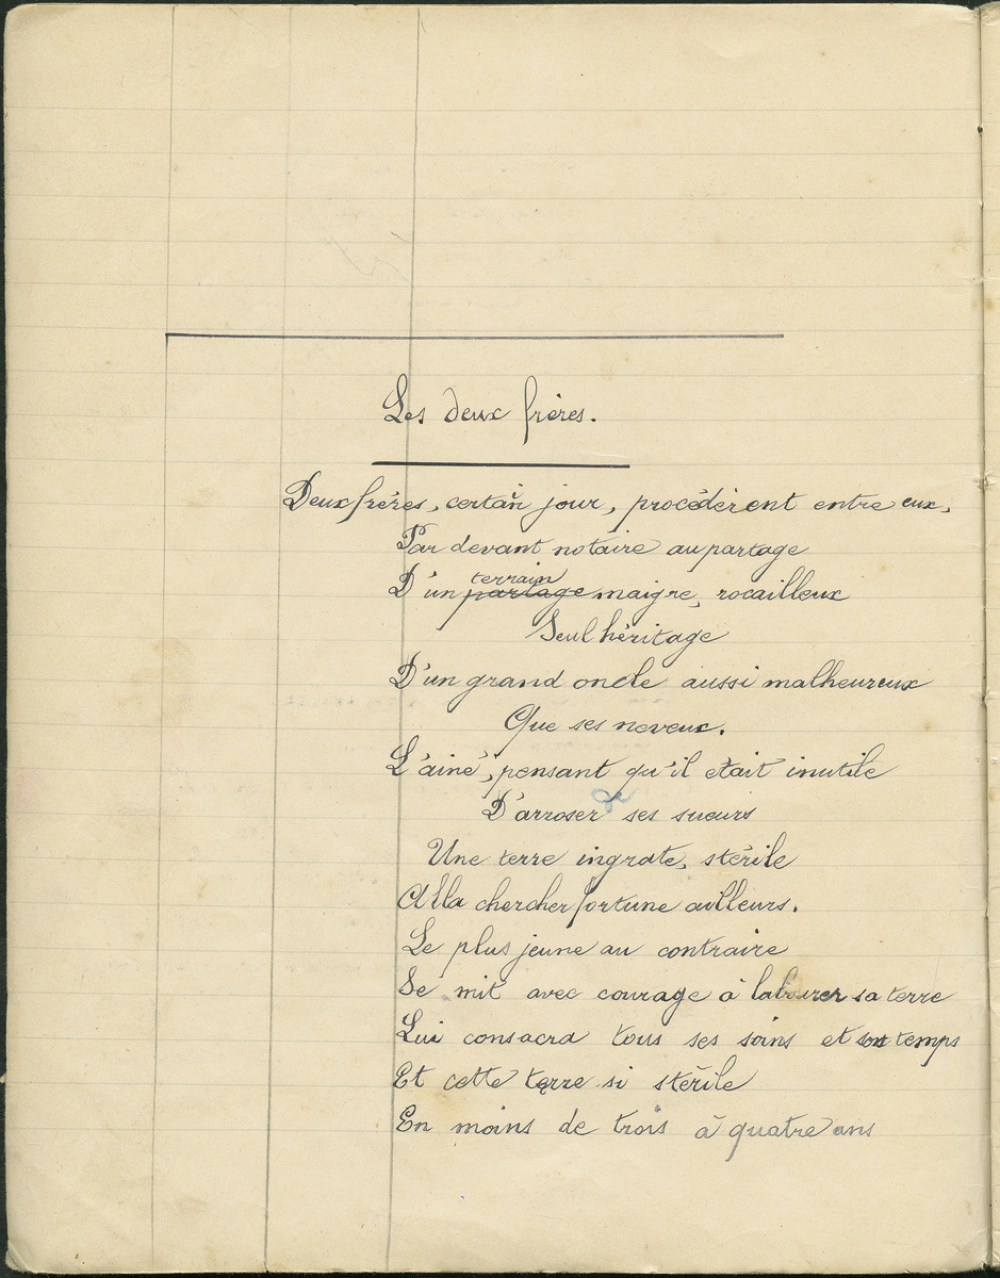 Les deux frères.
Deux frères, certain jour, procédèrent entre eux,
Par devant notaire au partage
D'un partage terrain maigre, rocailleux
Seul héritage
D'un grand oncle aussi malheureux
Que ses neveux.
L'ainé, pensant qu'il était inutile
D'arroser de ses sueurs
Une terre ingrate, stérile
Alla chercher fortune ailleurs.
Le plus jeune au contraire
Se mit avec courage à labourer sa terre
Lui consacra tous ses soins et son temps
Et cette terre si stérile
En moins de trois à quatre ans